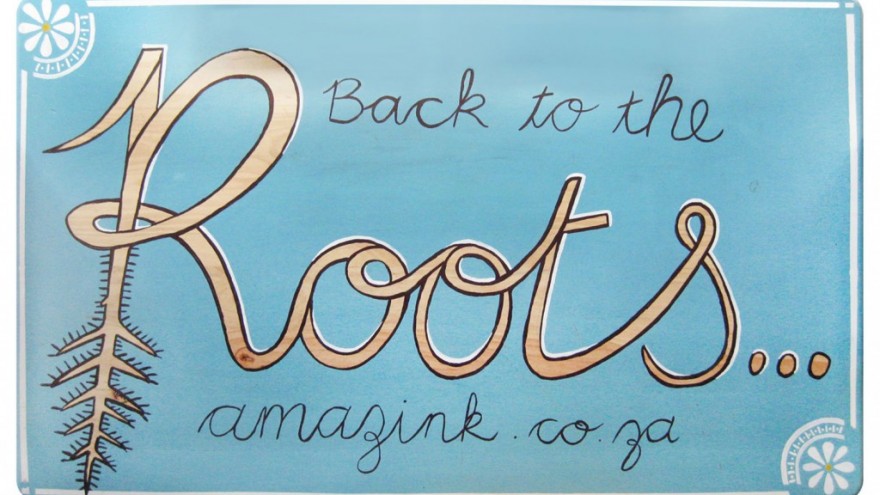 Back to the
Roots...
amazink.co.za